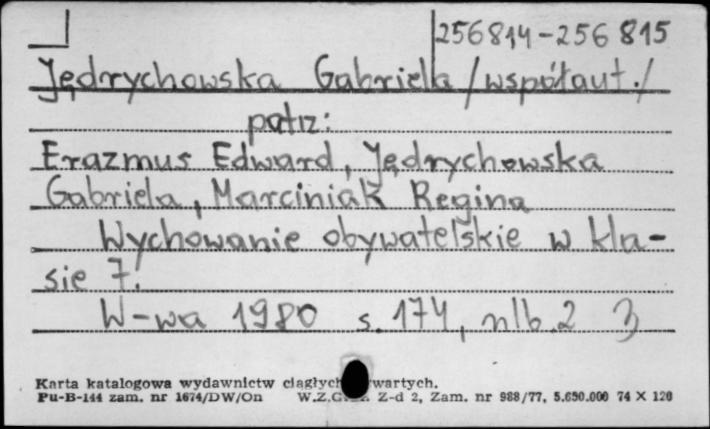 256814-256 815
Jędrychowska Gabriela /współaut./
patrz:
Erazmus Edward, Jędrychowska
Gabriela, Marciniak Regina
Wychowanie obywatelskie w kla-
sie 7.
W-wa 1980 s. 174, nlb. 2 3
Karta katalogowa wydawnictw ciągłych wartych.
Pu-B-144 zam. nr 1674/DW/On W.Z.G. Z-d 2, Zam. nr 988/77, 5.650.000 74 X 120